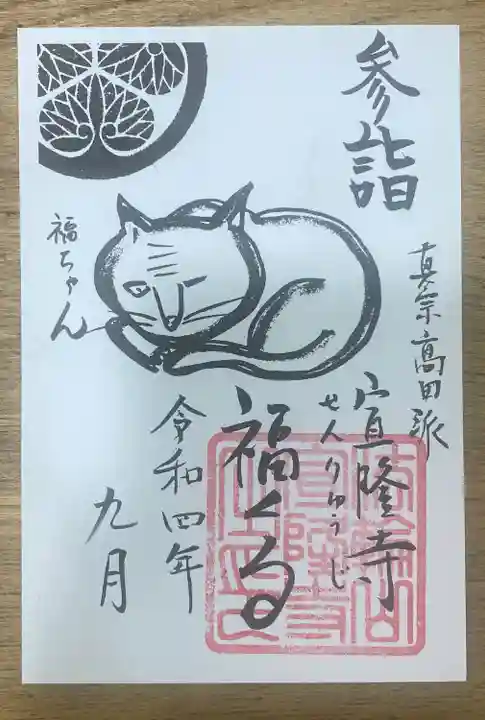 参詣
真宗高田派
宣隆寺
せんりゅうじ
福くる
福ちゃん
令和四年
九月